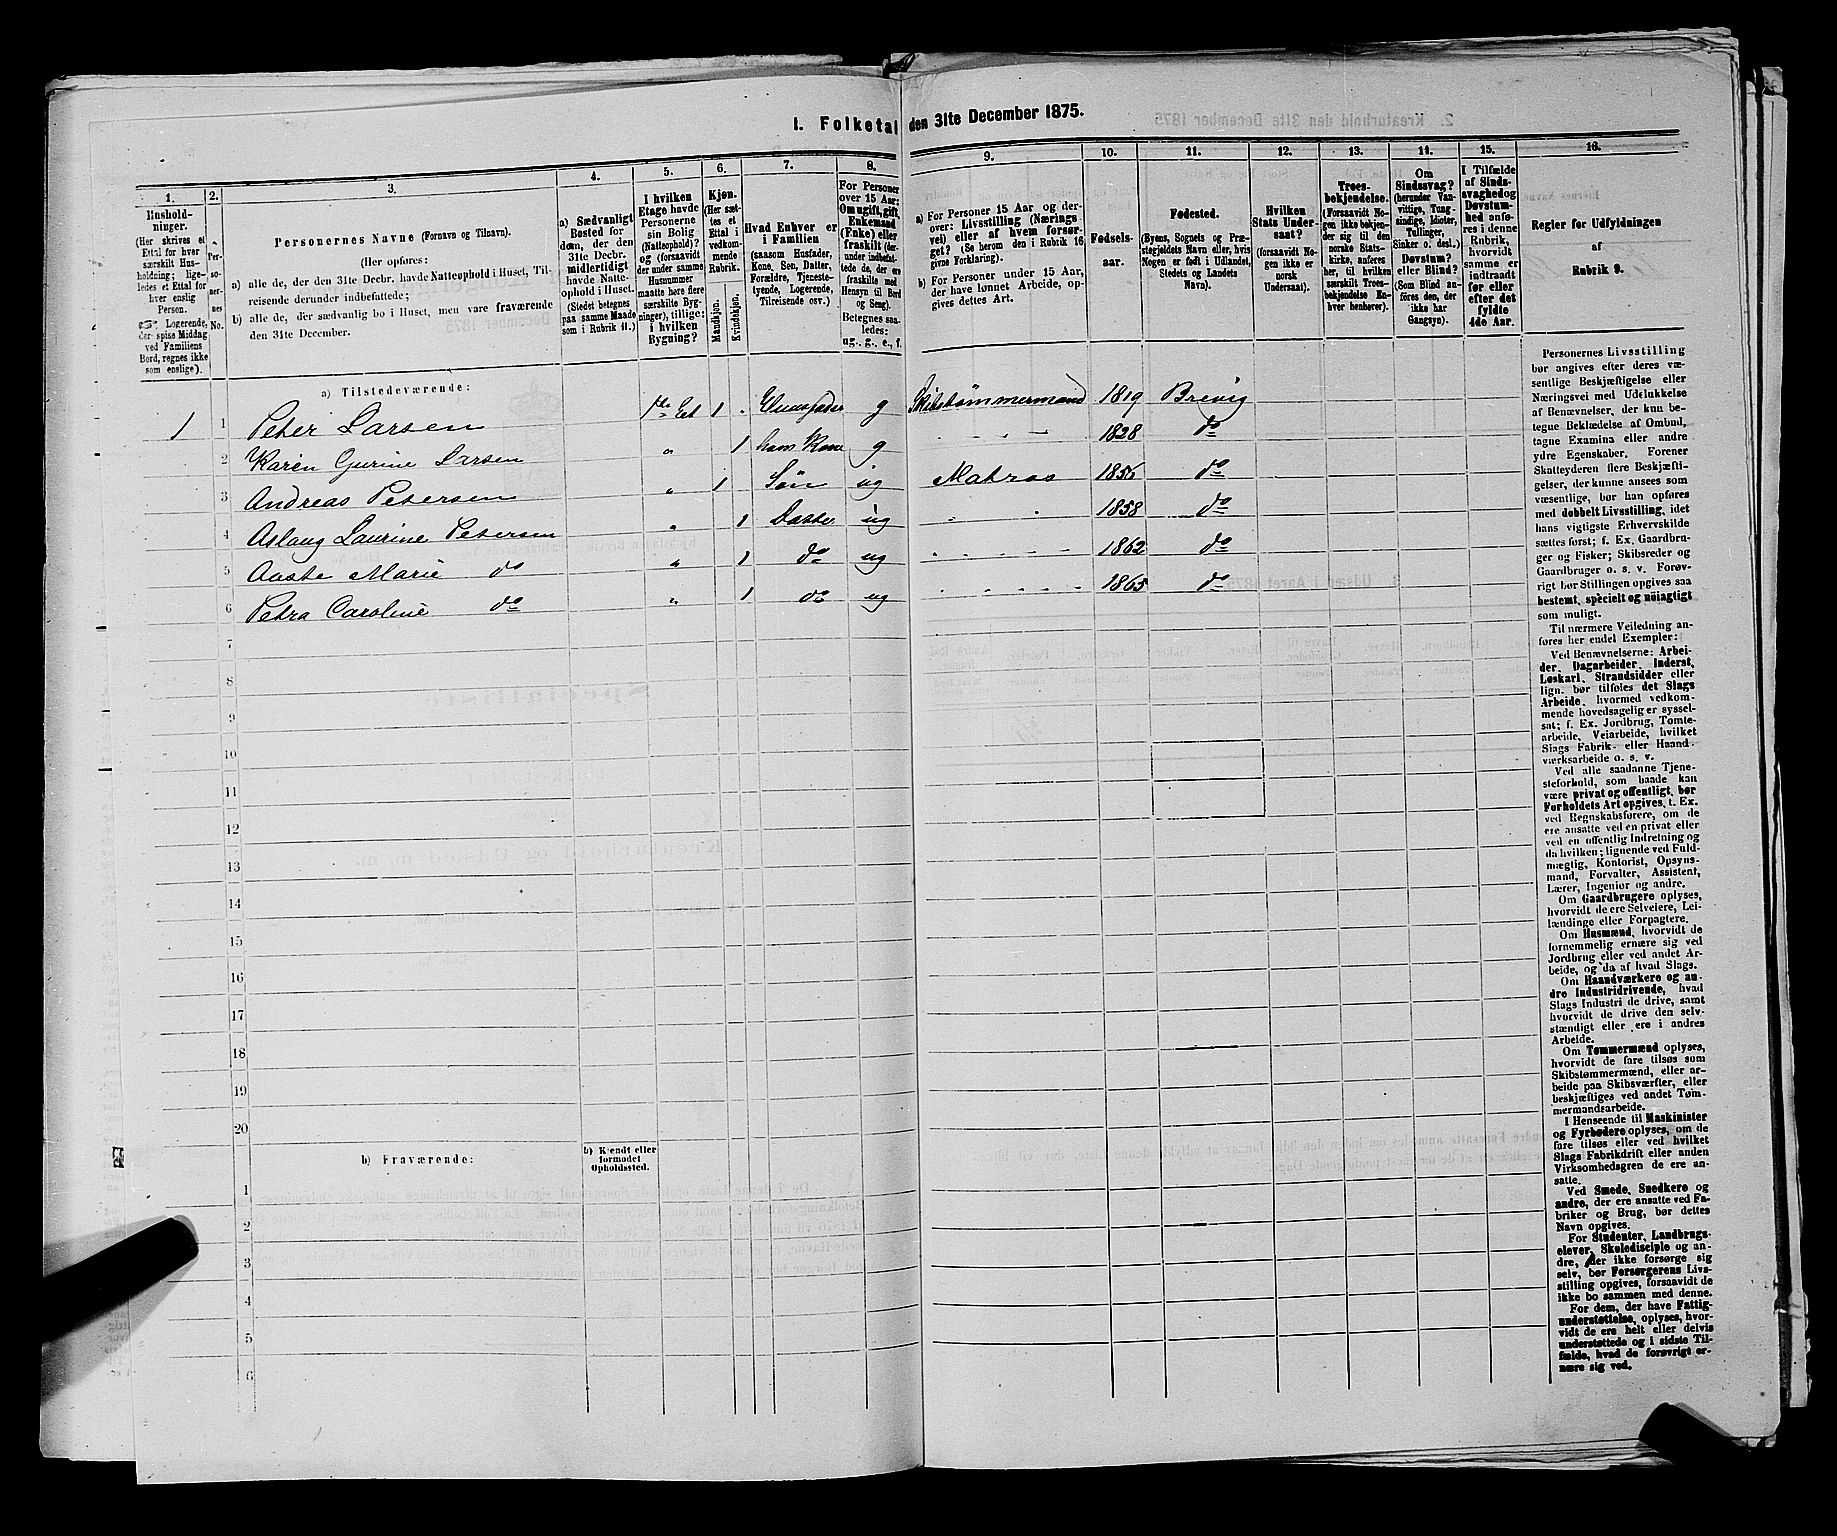 1. Folketal den 31te December 1875.
1.
Hushold-
ninger.
(Her skrives et
Ettal for hver
særskilt Hus-
holdning; lige-
ledes et Ettal for
hver enslig
Person.
Logerende,
der spise Middag
ved Familiens
Bord, regnes ikke
som enslige).
2.
Per-
so-
ner-
nes
No.
3.
Personernes Navne (Fornavn og Tilnavn).
(Her opføres:
a) alle de, der den 31te Decbr. havde Natteophold i Huset, Til-
reisende derunder indbefattede;
b) alle de, der sædvanlig bo i Huset, men vare fraværende
den 31te December.
4.
a) Sædvanligt
Bosted for
dem, der den
31te Decbr.
midlertidigt
havde Natte-
ophold i Huset.
(Stedet betegnes
paa samme Maade
som i Rubrik 11.)
5.
I hvilken
Etage havde
Personerne
sin Bolig
(Natteophold)?
og (forsaavidt
der under samme
Husnummer
maatte høre flere
særskilte Byg-
ninger), tillige:
i hvilken
Bygning?
6.
Kjøn.
(Her sæt-
tes et
Ettal i
vedkom-
mende
Rubrik.
Mandkjøn.
Kvindekjøn.
7.
Hvad Enhver er
i Familien
(saasom Husfader,
Kone, Søn, Datter,
Forældre, Tjeneste-
tyende, Logerende,
Tilreisende osv.)
8.
For Personer
over 15 Aar;
Om ugift, gift,
Enkemand
(Enke) eller
fraskilt (der-
under indbefat-
tede de, der ere
fraskilte med
Hensyn til Bord
og Seng).
Betegnes saa-
ledes:
ug., g., e., f.
9.
a) For Personer 15 Aar og der-
over: Livsstilling (Nærings-
vei) eller af hvem forsør-
get? (Se herom den i Rubrik 16
givne Forklaring).
b) For Personer under 15 Aar,
der have lønnet Arbeide, op-
gives dettes Art.
10.
Fødsels-
aar.
11.
Fødested.
(Byens, Sognets og Præ-
stegjeldets Navn eller, hvis
Nogen er født i Udlandet,
Stedets og Landets
Navn).
12.
Hvilken
Stats Under-
saat?
(forsaavidt No-
gen ikke er
norsk
Undersaat).
13.
Troes-
bekjendelse.
(Forsaavidt No-
gen ikke bekjen-
der sig til den
norske Stats-
kirke, anføres
her, til hvilken
særskilt Troes-
bekjendelse En-
hver henhører).
14.
Om
Sindssvag?
(herunder Van-
vittige, Tung-
sindige, Idioter,
Tullinger,
Sinker o. desl.)
Døvstum?
eller Blind?
(Som Blind an-
føres den, der
ikke har
Gangsyn).
15.
I Tilfælde
af Sinds-
svaghed og
Døvstum-
hed anfø-
res i denne
Rubrik,
hvorvidt
samme er
indtraadt
før eller
efter det
fyldte
4de Aar.
16.
Regler for Udfyldningen
af
Rubrik 9.
a) Tilstedeværende:
1 1 Peter Larsen 1ste Et 1 . Huusfader g Skibstømmermand 1819 Brevig
2 Karen Gurine Larsen " 1 hans Kone g 1828 do
3 Andreas Petersen " 1 Søn ug Matros 1856 do
4 Aslaug Laurine Petersen " 1 Datter ug 1858 do
5 Aaste Marie do " 1 do ug 1862 do
6 Petra Caroline do " 1 do ug 1865 do
7
8
9
10
11
12
13
14
15
16
17
18
19
20
b) Fraværende:
b) Kjendt eller
formodet
Opholdssted.
1
2
3
4
5
6
Personernes Livsstilling
bør angives efter deres væ-
sentlige Beskjæftigelse eller
Næringsvei med Udelukkelse
af Benævnelser, der kun be-
tegne Beklædelse af Ombud,
tagne Examina eller andre
ydre Egenskaber. Forener
Skatteyderen flere Beskjæfti-
gelser, der kunne ansees som
væsentlige, bør han opføres
med dobbelt Livsstilling, idet
hans vigtigste Erhvervskilde
sættes først; f. Ex. Gaardbru-
ger og Fisker; Skibsreder og
Gaardbruger o. s. v. Forøv-
rigt bør Stillingen opgives saa
bestemt, specielt og nøiagtigt
som muligt.
Til nærmere Veiledning an-
føres her endel Exempler:
Ved Benævnelserne: Arbei-
der, Dagarbeider, Inderst,
Løskarl, Strandsidder eller
lign. bør tilføies det Slags
Arbeide, hvormed vedkom-
mende hovedsagelig er syssel-
sat; f. Ex. Jordbrug, Tomte-
arbeide, Veiarbeide, hvilket
Slags Fabrik- eller Haand-
værksarbeide o. s. v.
Ved alle saadanne Tjene-
steforhold, som baade kan
være privat og offentligt, bør
Forholdets Art opgives, t. Ex.
ved Regnskabsførere, om de
ere ansatte ved en privat eller
en offentlig Indretning og
da hvilken; lignende ved Fuld-
mægtig, Kontorist, Opsyns-
mand, Forvalter, Assistent,
Lærer, Ingeniør og andre.
Om Gaardbrugere oplyses,
hvorvidt de ere Selveiere, Lei-
lændinge eller Forpagtere.
Om Husmænd, hvorvidt de
fornemmelig ernære sig ved
Jordbrug eller ved andet Ar-
beide, og da af hvad Slags.
Om Haandværkere og an-
dre Industridrivende, hvad
Slags Industri de drive, samt
hvorvidt de drive den selv-
stændigt eller ere i andres
Arbeide.
Om Tømmermænd oplyses,
hvorvidt de fare tilsøs som
Skibstømmermænd, eller ar-
beide paa Skibsværfter, eller
beskjæftiges ved andet Tøm-
mermandsarbeide.
I Henseende til Maskinister
og Fyrbødere oplyses, om de
fare tilsøs eller ved hvilket
Slags Fabrikdrift eller anden
Virksomhedsgren de ere an-
satte.
Ved Smede, Snedkere og
andre, der ere ansatte ved Fa-
briker og Brug, bør dettes
Navn opgives.
For Studenter, Landbrugs-
elever, Skoledisciple og an-
dre, der ikke forsørge sig
selv, bør Forsørgerens Livs-
stilling opgives, forsaavidt de
ikke bo sammen med denne.
For dem, der have Fattig-
understøttelse, oplyses, hvor-
vidt de ere helt eller delvis
understøttede og i sidste Til-
fælde, hvad de forøvrigt er-
nære sig ved.